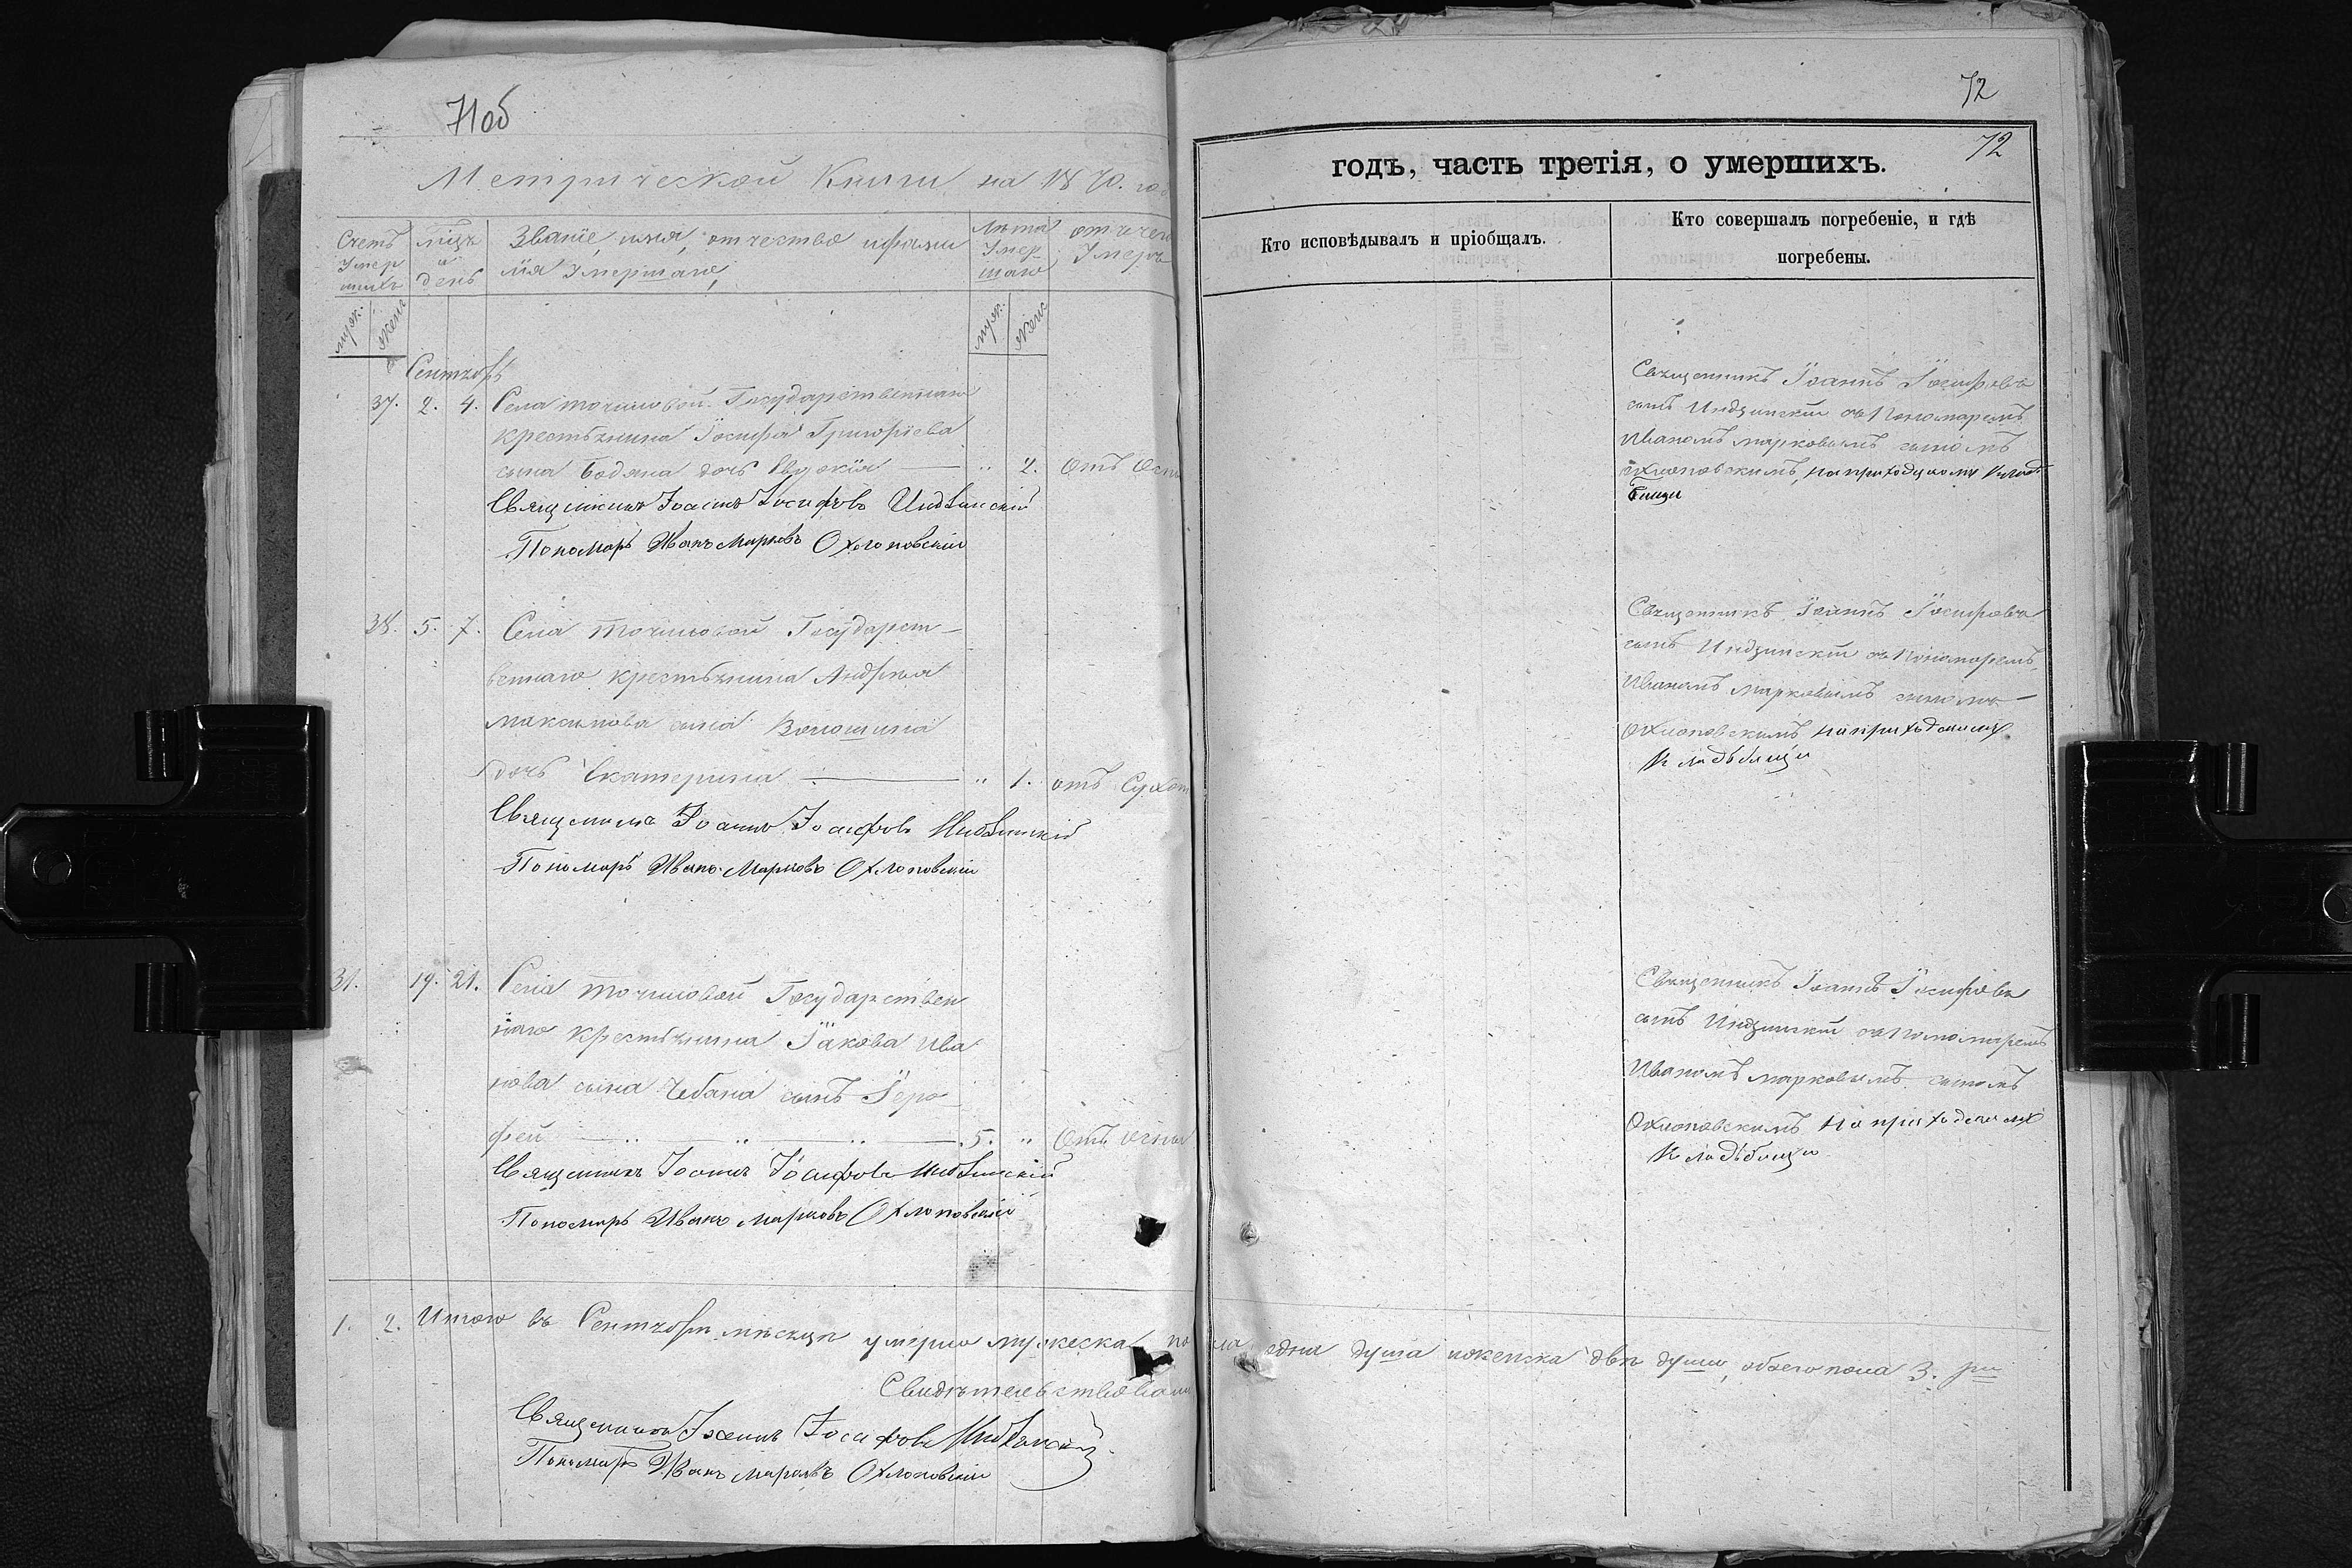 71об
Метрической Книги на 1870. год
Счетъ Умершихъ
Мцъ и день
Званіе, имя, отчество и фамилія Умершаго,
Лѣта Умершаго
отъ чего Умеръ
муж. жен
муж. жен
Сентябрь
37. 2. 4. Села Точиловой Государственнаго
крестьянина Іосифа Григоріева
сына Бодяна дочь Евдокія — " 2. Отъ
Священникъ Іоаннъ Іосифовъ Индзинскій
Пономарь Иванъ Марковъ Охлоповскій
38. 5. 7. Села Точиловой Государст-
веннаго крестьянина Андрея
Максимова сына Волошина
дочь Екатерина — " 1. отъ Сухот
Священникъ Іоаннъ Іосифовъ Индзинскій
Пономарь Иванъ Марковъ Охлоповскій
31. 19. 21. Села Точиловой Государствен
наго крестьянина Іакова Ива
нова сына Чебана сынъ Іеро
фей — " — " — " — 5. " Отъ
Священникъ Іоаннъ Іосифовъ Индзинскій
Пономарь Иванъ Марковъ Охлоповскій
1. 2. Итого въ Сентябрѣ мѣсяцѣ умерло мужеска пола одна душа и женска двѣ души, обоего пола 3.
Свидѣтельствовали
Священникъ Іоаннъ Іосифовъ Индзинскій
Пономарь Иванъ Марковъ Охлоповскій
72
72
годъ, часть третія, о умершихъ.
Кто исповѣдывалъ и пріобщалъ.
Кто совершалъ погребеніе, и гдѣ
погребены.
Священникъ Іоаннъ Іосифовъ
сынъ Индзинскій съ Пономаремъ
Иваномъ Марковымъ сыномъ
Охлоповскимъ, на приходскомъ Клад
бищи
Священникъ Іоаннъ Іосифовъ
сынъ Индзинскій съ Пономаремъ
Иваномъ Марковымъ сыномъ
Охлоповскимъ на приходскомъ
Кладьбищи
Священникъ Іоаннъ Іосифовъ
сынъ Индзинскій съ Пономаремъ
Иваномъ Марковымъ сыномъ
Охлоповскимъ на приходскомъ
Кладьбищи